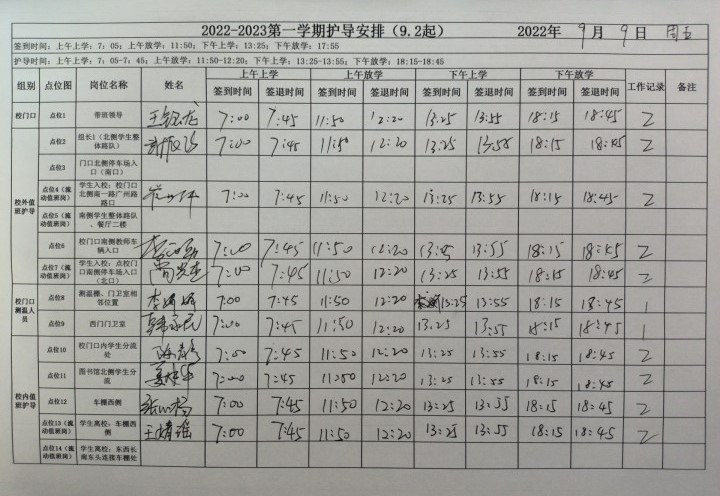 2022-2023第一学期护导安排（9.2起） 2022年 9月 9日 周五
签到时间：上午上学：7：05；上午放学：11:50；下午上学：13:25；下午放学：17:55
护导时间：上午上学：7：05-7：45；上午放学：11:50-12:20；下午上学：13:25-13:55；下午放学：18:15-18:45
组别 点位图 岗位名称 姓名 上午上学 上午放学 下午上学 下午放学 工作记录 备注
签到时间 签退时间 签到时间 签退时间 签到时间 签退时间 签到时间 签退时间
校门口 点位1 带班领导 7:00 7:45 11:50 12:20 13:25 13:55 18:15 18:45 2
校外值班护导
点位2 组长1（北侧学生整体路队） 7:00 7:45 11:50 12:20 13:25 13:58 18:15 18:45 2
点位3 门口北侧停车场入口（南口）
点位4（流动值班岗） 学生入校：校门口北侧南一路广州路路口 7:00 7:45 11:50 12:20 13:25 13:55 18:15 18:45 2
点位5（流动值班岗） 南侧学生整体路队、餐厅二楼
点位6 校门口南侧教师车辆入口 7:00 7:45 11:50 12:20 13:45 13:55 18:15 18:45 2
点位7（流动值班岗） 学生入校：点校门口南侧停车场入口（北口） 7:00 7:45 11:50 12:20 13:25 13:55 18:15 18:45 2
校门口测温人员
点位8 测温棚、门卫室相邻位置 7:00 7:45 11:50 12:20 13:25 13:55 18:15 18:45 1
点位9 西门门卫室 7:00 7:45 11:50 12:20 13.25 13:55 18:15 18:45 1
校内值班护导
点位10 校门口内学生分流处 7:00 7:45 11:50 12:20 13:25 13:55 18:15 18:45 2
点位11 图书馆北侧学生分流 7:00 7:45 11:50 12:20 13:25 13:55 18:15 18:45 2
点位12 车棚西侧 7:00 7:45 11:50 12:20 13:25 13:35 18:15 18:45 2
点位13（流动值班岗） 学生离校：车棚西侧 王婧瑶 7:00 7:45 11:50 12:20 13:25 13:55 18:15 18:45 2
点位14（流动值班岗） 学生离校：东西长南东头连接车棚处